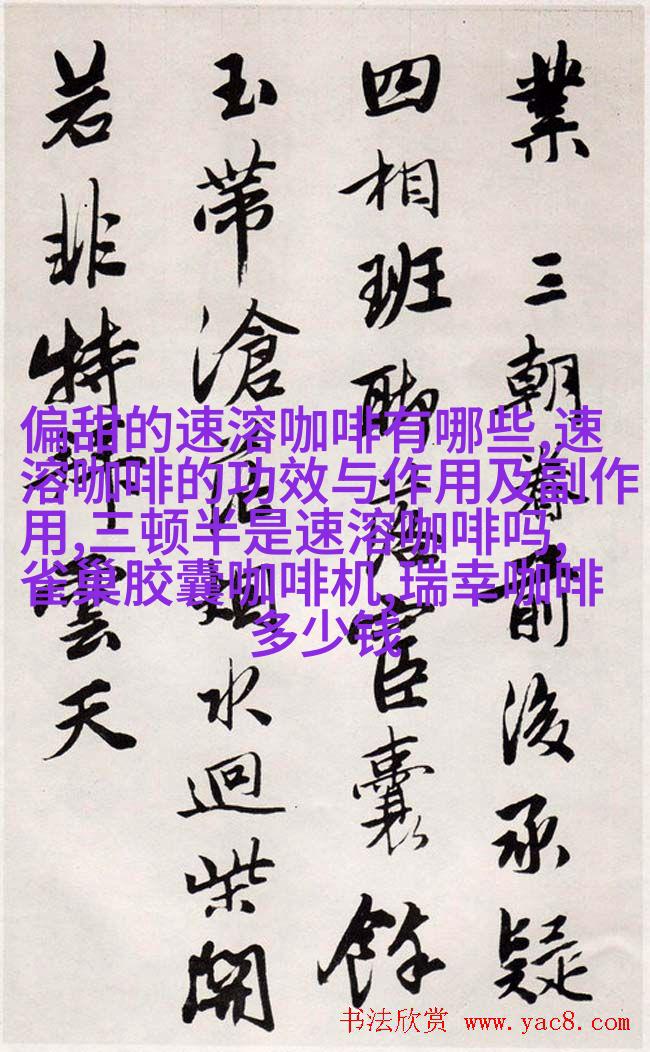 業 三朝前後承疑
四相班宦囊餘
玉帶滄烟水迴柴開
若非特雲天
偏甜的速溶咖啡有哪些,速
溶咖啡的功效与作用及副作
用,三顿半是速溶咖啡吗,
雀巢胶囊咖啡机,瑞幸咖啡
多少钱
书法欣赏 www.yac8.com